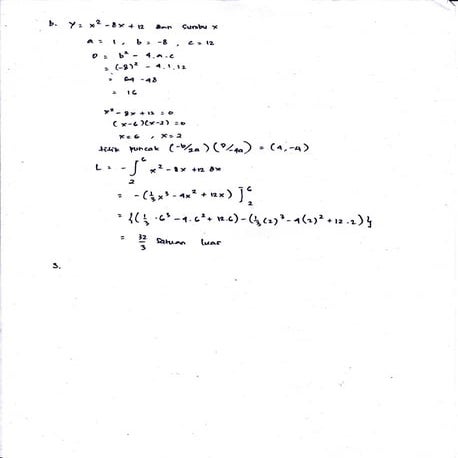 b. y = x² - 8x + 12 dan sumbu x
a = 1 , b = -8 , c = 12
D = b² - 4.a.c
= (-8)² - 4.1.12
= 64 - 48
= 16
x² - 8x + 12 = 0
(x-6)(x-2) = 0
x = 6 , x = 2
titik puncak (-b/2a)(D/4a) = (4,-4)
L = - ∫₂⁶ x² - 8x + 12 dx
= - (⅓x³ - 4x² + 12x) ]₂⁶
= {(⅓ · 6³ - 4.6² + 12.6) - (⅓(2)³ - 4(2)² + 12.2)}
= 32/3 satuan luas
3.